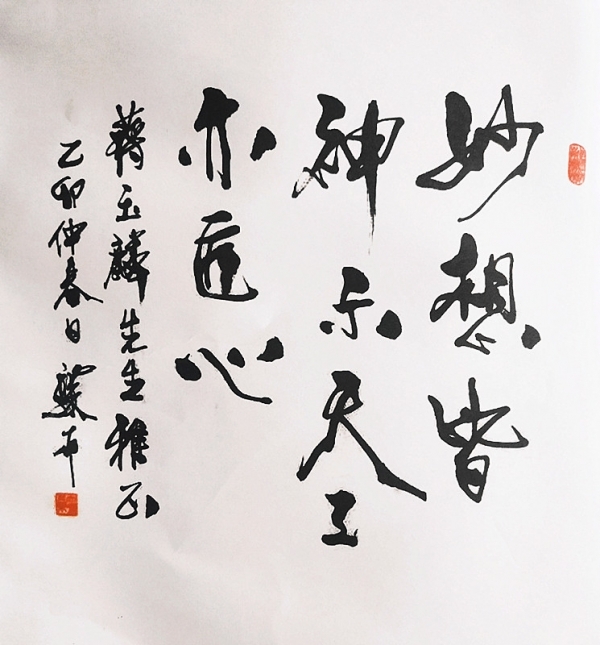 妙想皆
神示天工
亦匠心
蒋玉麟先生雅正
乙卯仲春日